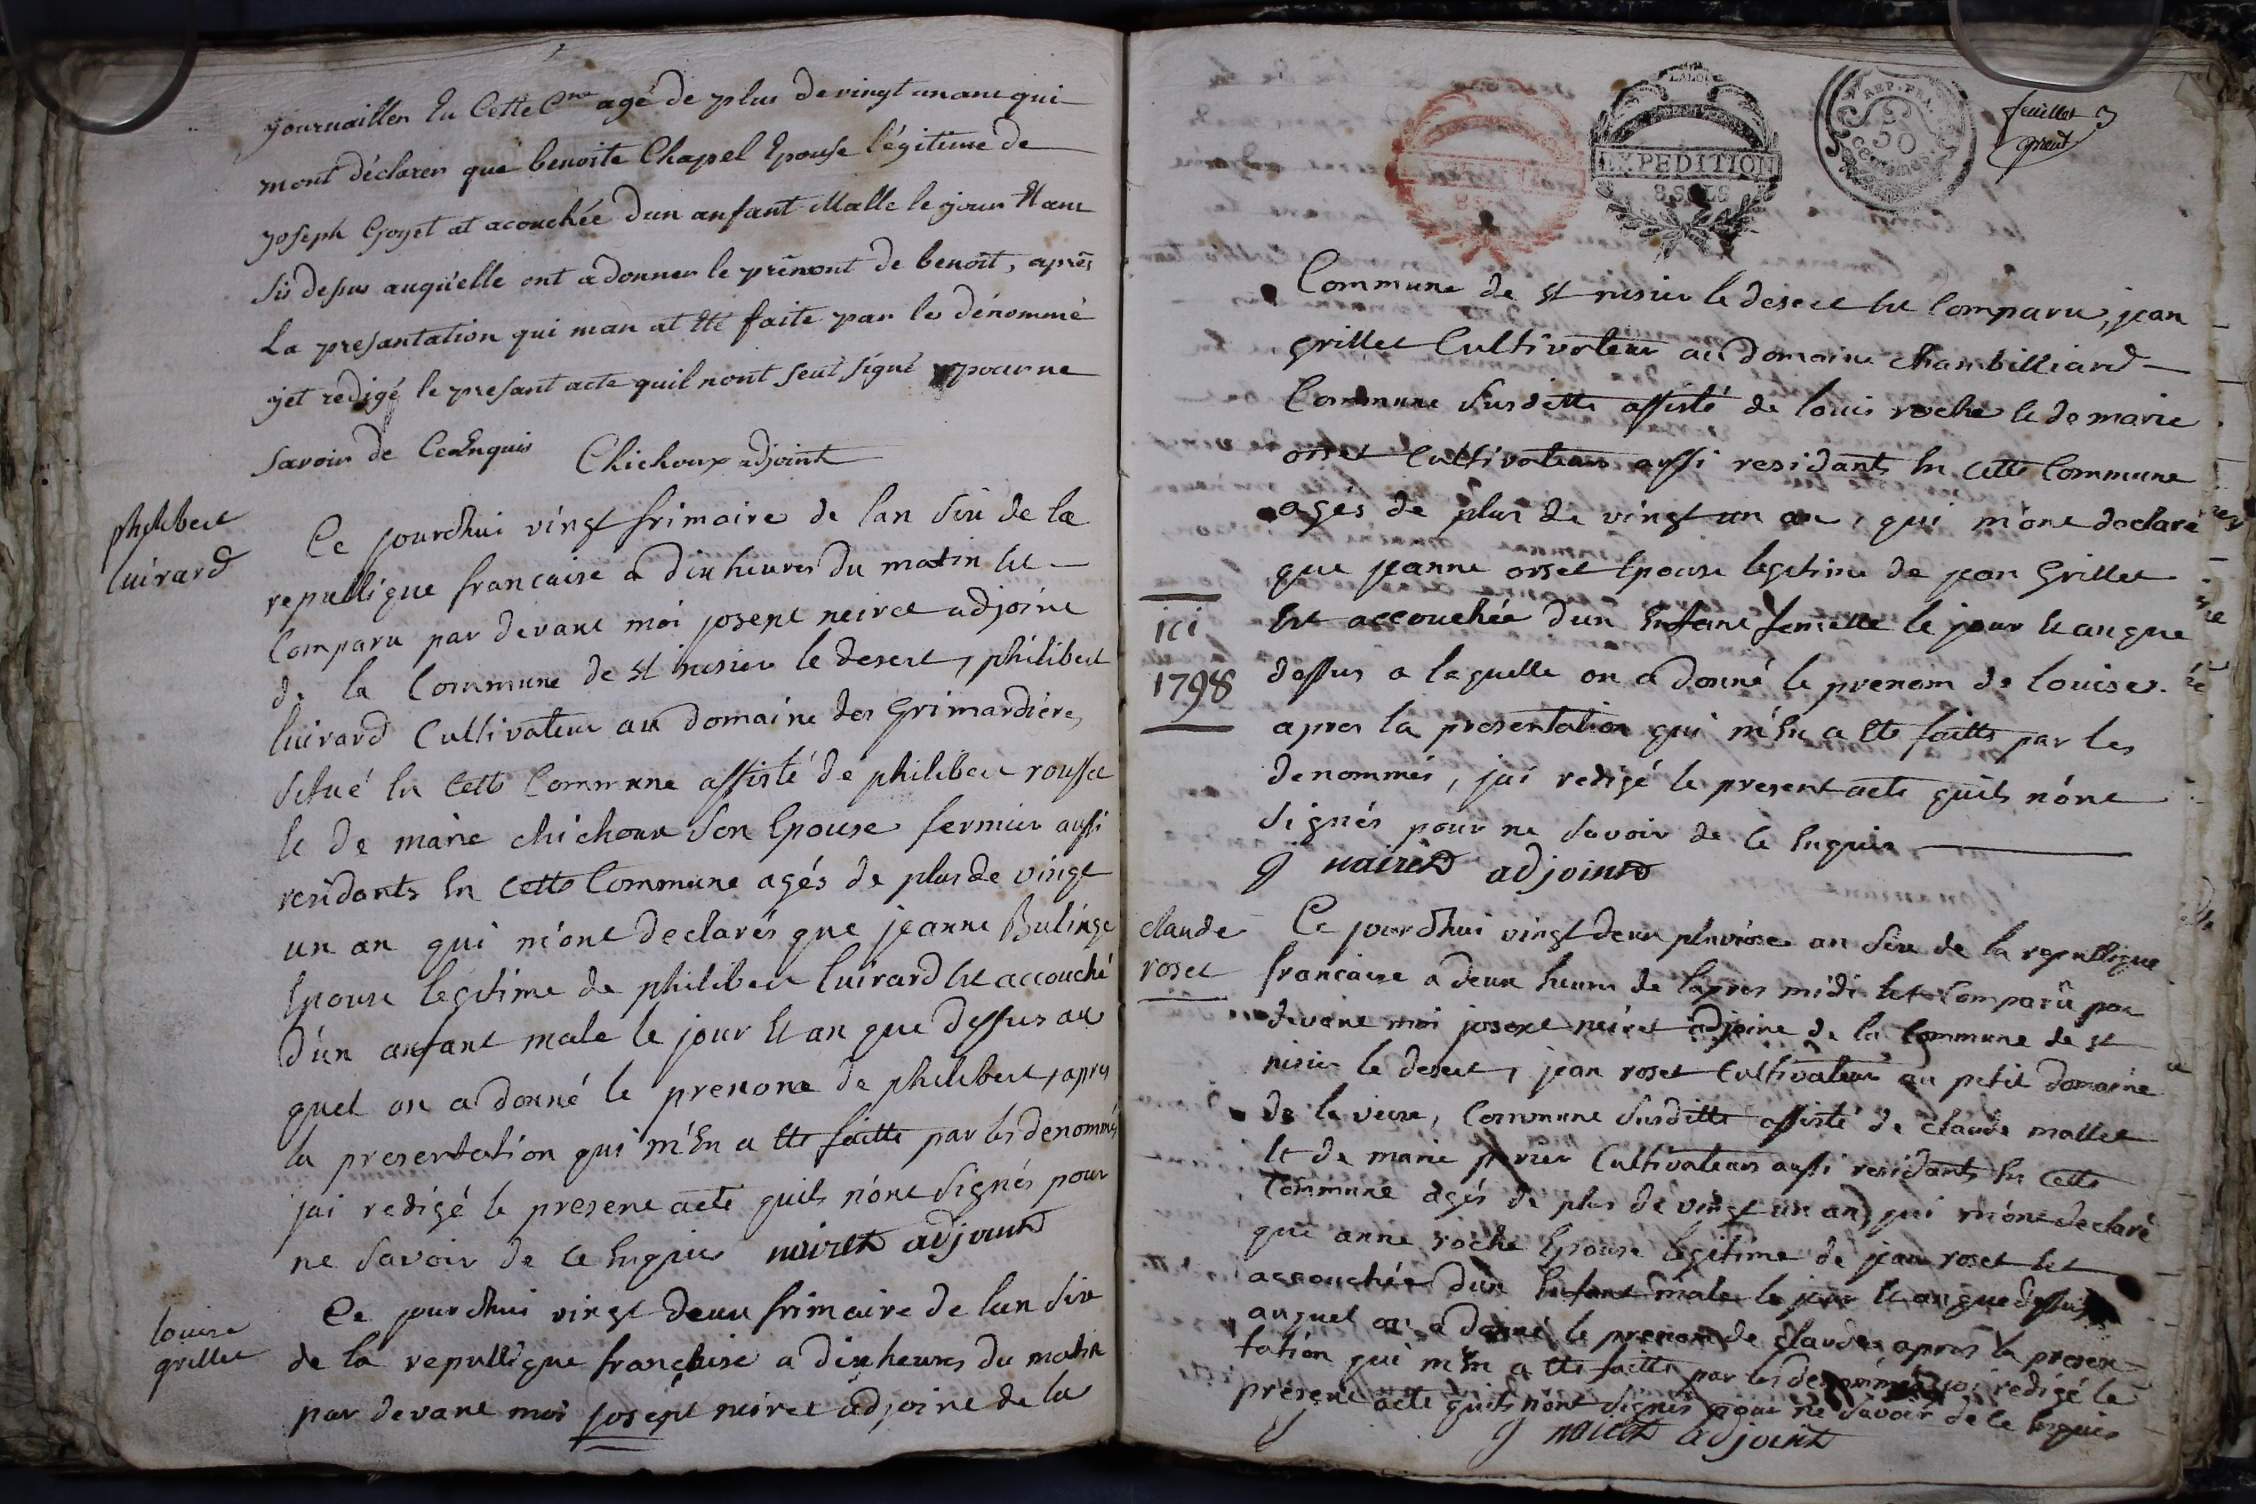 journaillier En Cette Cne agé de plus de vingt un ans qui
mont déclarer que benoite Chapel Epouse légitime de
joseph Goyet at acouchée dun anfant Malle le jour Et ans
sis desus auqu'elle ont a donner le prénont de benoît, aprês
La presantation qui man at Eté faite par les dénommé
jet redigé le presant acte quil nont seut signé pour ne
savoir de Ce Enquis Chichoux adjoint
philibert
luirard
Ce jourdhui vingt frimaire de lan six de la
republique francaise a dix heures du matin Est
Comparu par devant moi josept neiret adjoint
de la Commune de st nisier le desert, philibert
luirard Cultivateur au domaine des Grimardière,
situé En Cette Commune assisté de philibert rousset
Et De marie chichoux son Epouse fermier aussi
residants En Cette Commune agés de plus de vingt
un an qui m'ont declarés que jeanne Bulinge
Epouse legitime de philibert luirard Est accouché
d'un anfant male le jour Et an que dessus au
quel on a donné le prenom de philibert, apres
la presentation qui m'En a Eté faitte par les denommés
jai redigé le present acte quils n'ont signés pour
ne savoir de ce Enquis neiret adjoint
louise
grillet
Ce jourdhui vingt deux frimaire de lan six
de la republique francaise a dix heures du matin
par devant moi josept neiret adjoint de la
LA LOI
EXPEDITION
8 SOLS
REP. FRA.
50
Centimes
feuillet 3
Commune de st nisier le desert Est Comparu, jean
grillet Cultivateur au domaine Chambilliard
Commune susditte assisté de louis roche Et de marie
orset Cultivateurs aussi residants En Cette Commune
agés de plus de vingt un an, qui m'ont declaré
que jeanne orset Epouse legitime de jean Grillet
Est accouchée dun Enfant femelle le jour Et an que
ici
1798
dessus a laquelle on a donné le prenom de louise.
apres la presentation qui m'En a Eté faitte par les
denommés, jai redigé le present acte quils n'ont
signés pour ne savoir de ce Enquis
J neiret adjoint
claude
roset
Ce jourdhui vingt deux pluviose an six de la republique
francaise a deux heures de lapres midi Est Comparû par
devant moi josept neiret adjoint de la Commune de st
nisier le desert, jean roset Cultivateur au petit domaine
de la veure, Commune susditte assisté de claude mallet
Et de marie perier Cultivateurs aussi residants En Cette
Commune agés de plus de vingt un an, qui m'ont declaré
que anne roche Epouse legitime de jean roset Est
accouchée dun Enfant male le jour Et an que dessus,
auquel on a donné le prenom de claude, apres la presen-
tation qui m'En a Eté faitte par les denommés jai redigé le
present acte quils n'ont signés pour ne savoir de ce Enquis
J neiret adjoint